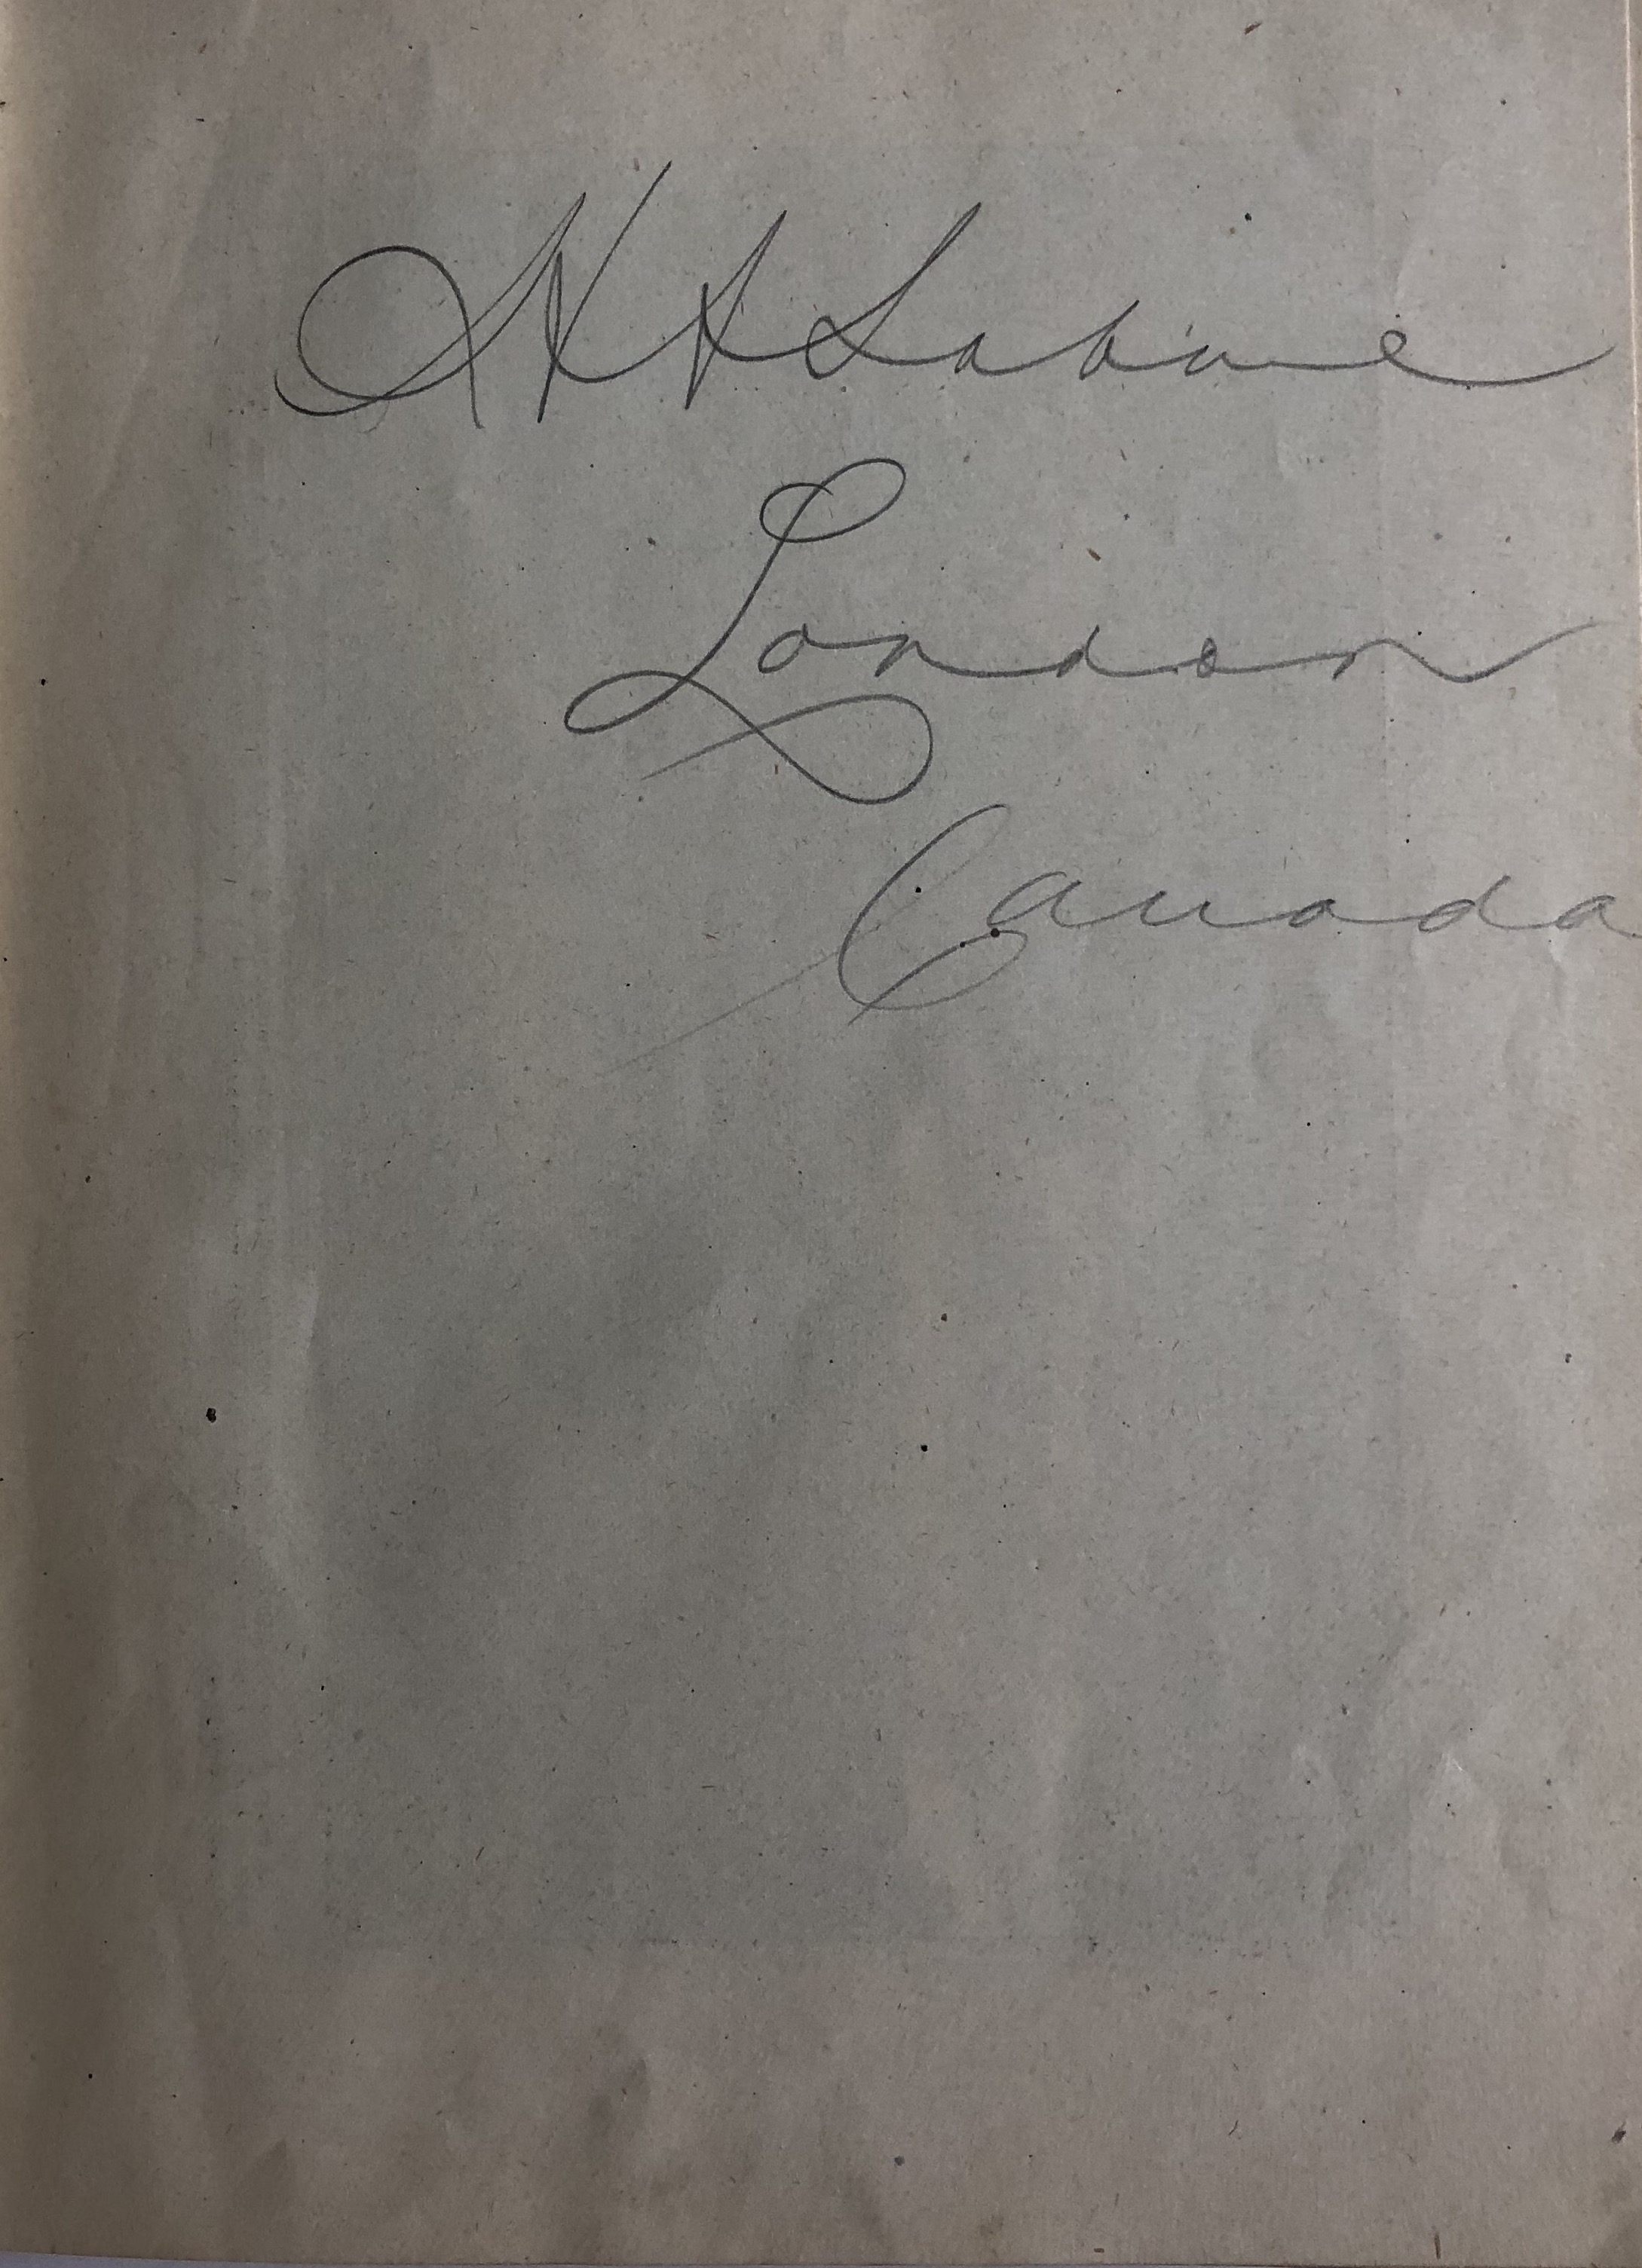 Sabine
London
Canada